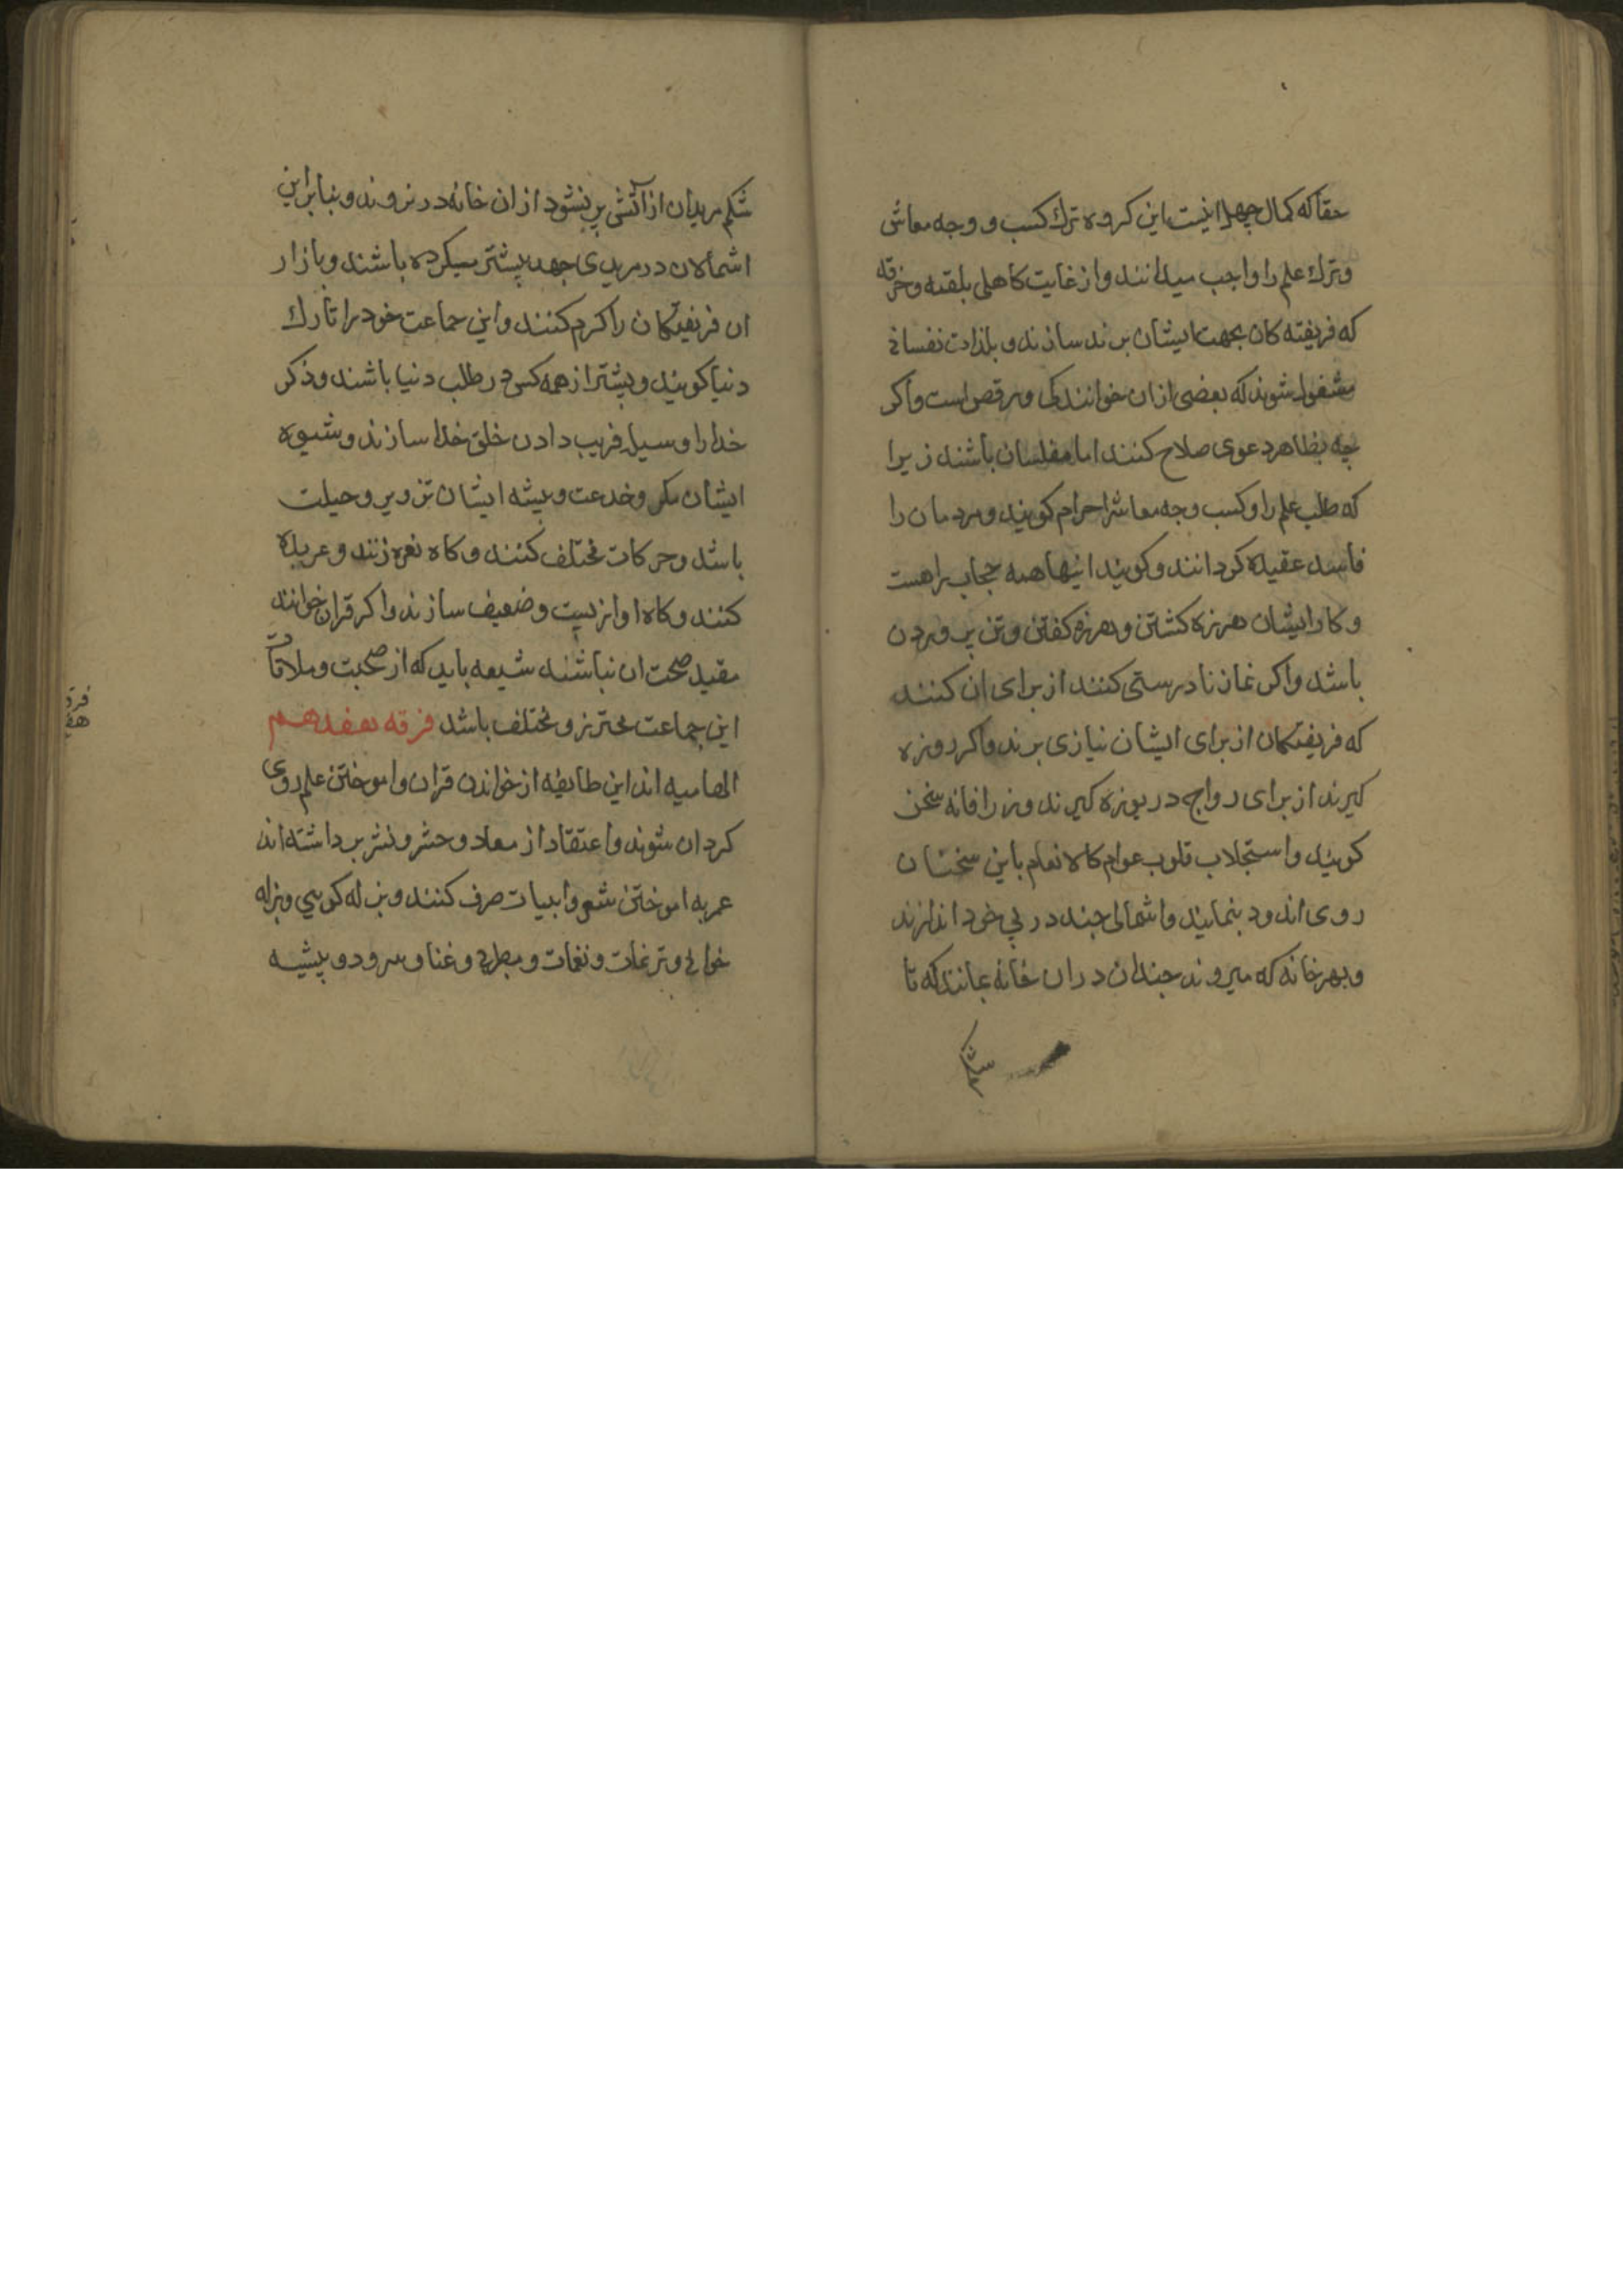 حقا که کمال جهل اینست این کروه ترك کسب و وجه معاش
وترك علم را واجب میدانند و از غایت کاهلی بلقمه وخرقه
که فریفته کان بجهت ایشان برند سازند و بلذات نفسانی
مشغول شوند که بعضی ازان خوانندکی ورقص است واکر
چه بظاهر دعوی صلاح کنند اما مفلسان باشند زیرا
که طلب علم را وکسب وجه معاشرا حرام کویند ومردمان را
فاسد عقیده کردانند وکویند اینها همه حجاب راهست
وکار ایشان هرزه کشتن وهرزه کفتن وتن پروردن
باشد واکر نماز نادرستی کنند از برای ان کنند
که فریفتکان از برای ایشان نیازی برند واکر روزه
کیرند از برای رواج دریوزه کیرند و زرافانه سخن
کویند واستجلاب قلوب عوام کالانعام باین سخنان
روی اندود بنمایند واشمالی چند در پی خود اندازند
وبهر خانه که میروند چندان دران خانه بمانند که تا
شکم
شکم مریدان از آتشی پر نشود ازان خانه در نروند وبنابراین
اشمالان در مریدی جهد بیشتر میکرده باشند وبازار
ان فریفتکان را کرم کنند واین جماعت خود را تارك
دنیا کویند وبیشتر از همه کس در طلب دنیا باشند وذکر
خدا را وسیله فریب دادن خلق خدا سازند وشیوه
ایشان مکر وخدعت وپیشه ایشان تزویر وحیلت
باشد وحرکات مختلف کنند وکاه نعره زنند وعربده
کنند وکاه اواز پست وضعیف سازند واکر قران خوانند
مقید صحت ان نباشند شیعه باید که از صحبت وملاقات
این جماعت محترز ومختلف باشد فرقه هفدهم
الهامیه اند این طایفه از خواندن قران واموختن علم روی
کردان شوند واعتقاد از معاد وحشر ونشر برداشته اند
عمر به اموختن شعر وابیات صرف کنند وبزله کویی وبزله
خوانی وترنمات ونغمات ومطربی وغنا وسرود وپیشه